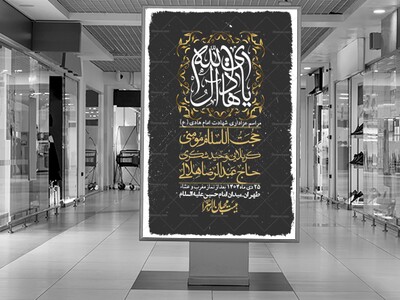 یا هادی آل الله
مراسم عزاداری شهادت امام هادی (ع)
حجت الاسلام مومنی
کربلایی وحید شکری
حاج عبدالرضا هلالی
۲۵ دی ماه ۱۴۰۲ بعد از نماز مغرب و عشاء
طهران، میدان امام حسین علیه السلام